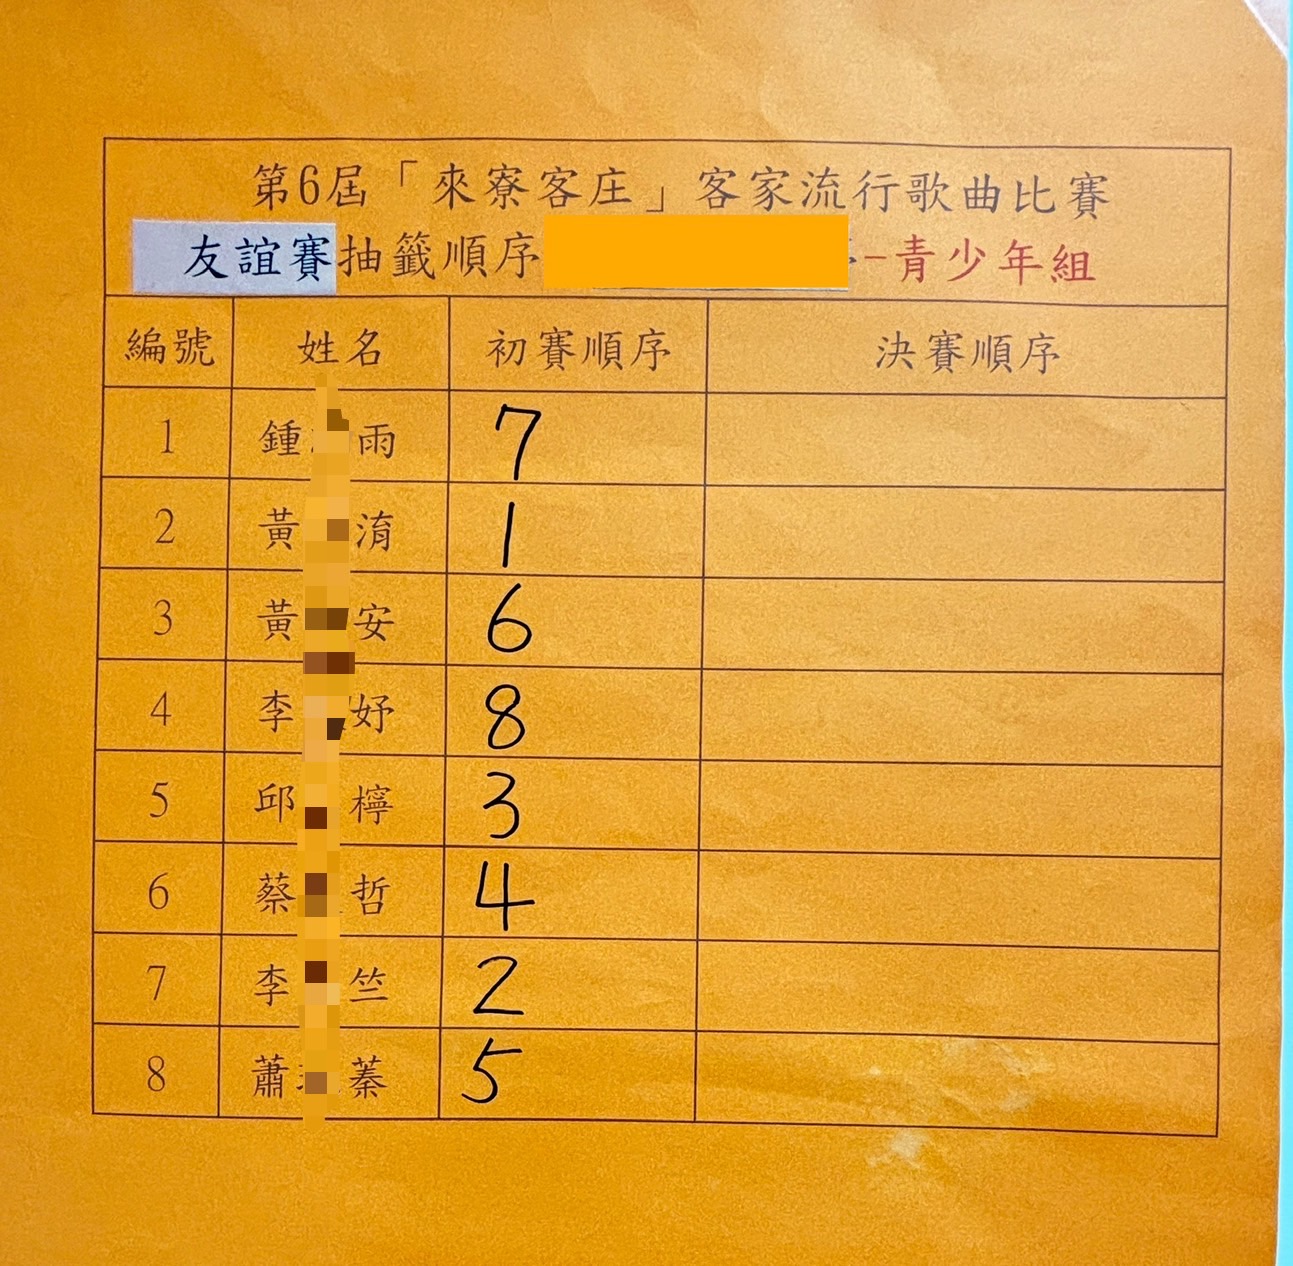 第6屆「來寮客庄」客家流行歌曲比賽
友誼賽抽籤順序 -青少年組
編號 姓名 初賽順序 決賽順序
1 鍾 雨 7
2 黃 淯 1
3 黃 安 6
4 李 妤 8
5 邱 檸 3
6 蔡 哲 4
7 李 竺 2
8 蕭 蓁 5